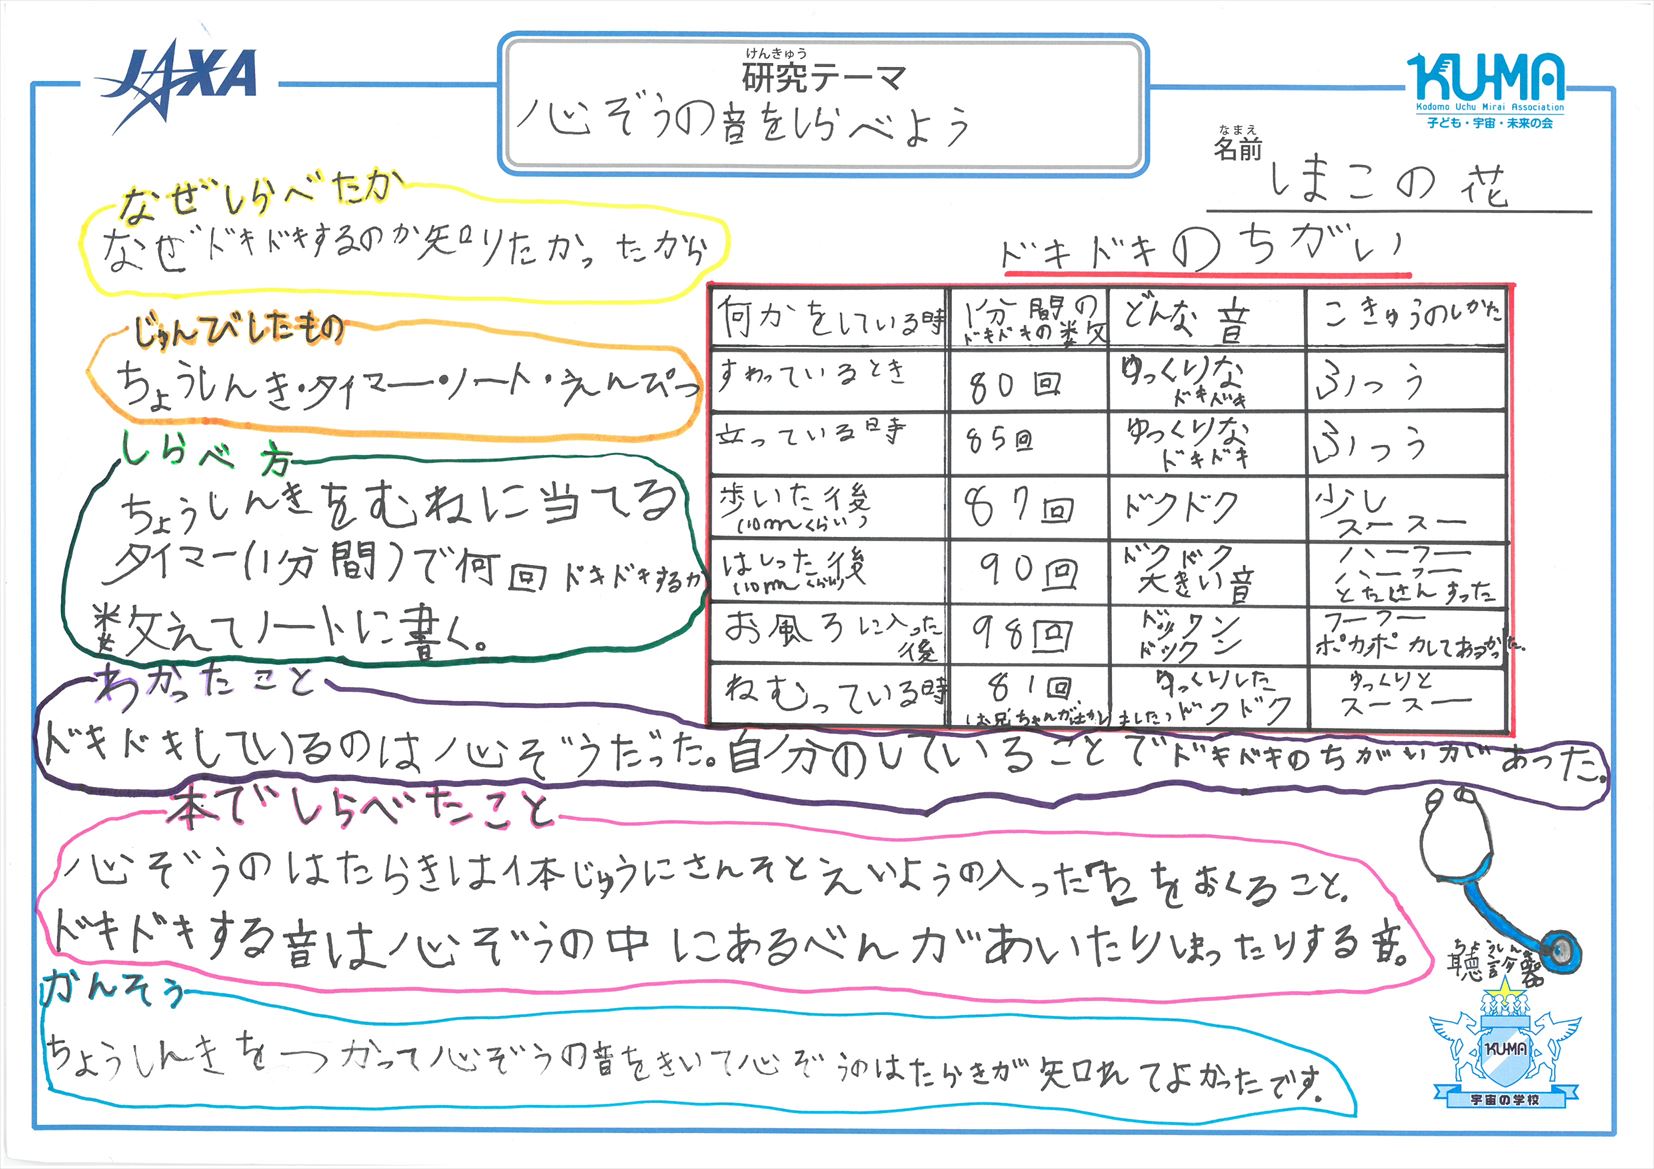 JAXA
けんきゅう
研究テーマ
心ぞうの音をしらべよう
KU-MA
Kodomo Uchu Mirai Association
子ども・宇宙・未来の会
なまえ
名前
しまこの花
なぜしらべたか
なぜドキドキするのか知りたかったから
じゅんびしたもの
ちょうしんき・タイマー・ノート・えんぴつ
しらべ方
ちょうしんきをむねに当てる
タイマー(1分間)で何回ドキドキするか
数えてノートに書く。
ドキドキのちがい
何かをしている時 1分間のドキドキの数 どんな音 こきゅうのしかた
すわっているとき 80回 ゆっくりなドキドキ ふつう
立っている時 85回 ゆっくりなドキドキ ふつう
歩いた後(10mくらい) 87回 ドクドク 少しスースー
はしった後(10mくらい) 90回 ドクドク大きい音 ハーフーハーフーとたくさんすった
お風ろに入った後 98回 ドックンドックン フーフーポカポカしてあつかった。
ねむっている時 81回(お兄ちゃんがはかりました) ゆっくりしたドクドク ゆっくりとスースー
わかったこと
ドキドキしているのは心ぞうだった。自分のしていることでドキドキのちがいがあった。
本でしらべたこと
心ぞうのはたらきは体じゅうにさんそとえいようの入った血をおくること。
ドキドキする音は心ぞうの中にあるべんがあいたりしまったりする音。
ちょうしんき
聴診器
かんそう
ちょうしんきをつかって心ぞうの音をきいて心ぞうのはたらきが知れてよかったです。
KU-MA
宇宙の学校